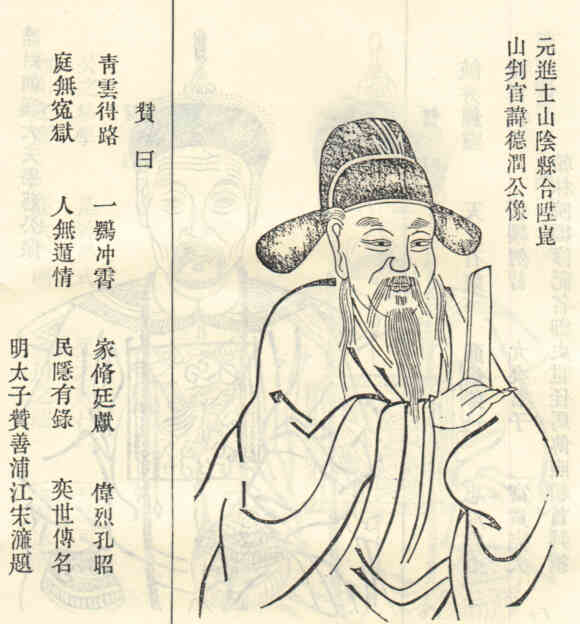 元進士山陰縣合陞崑
山判官諱德潤公像
贊曰
青雲得路 一鶚冲霄 家脩廷獻 偉烈孔昭
庭無寃獄 人無遁情 民隱有錄 奕世傳名
明太子贊善浦江宋濂題